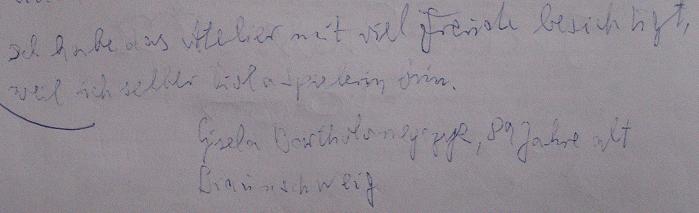 Ich habe das Atelier mit viel Freude besichtigt,
weil ich selber Viola-spielerin bin.
Gisela 89 Jahre alt
Braunschweig